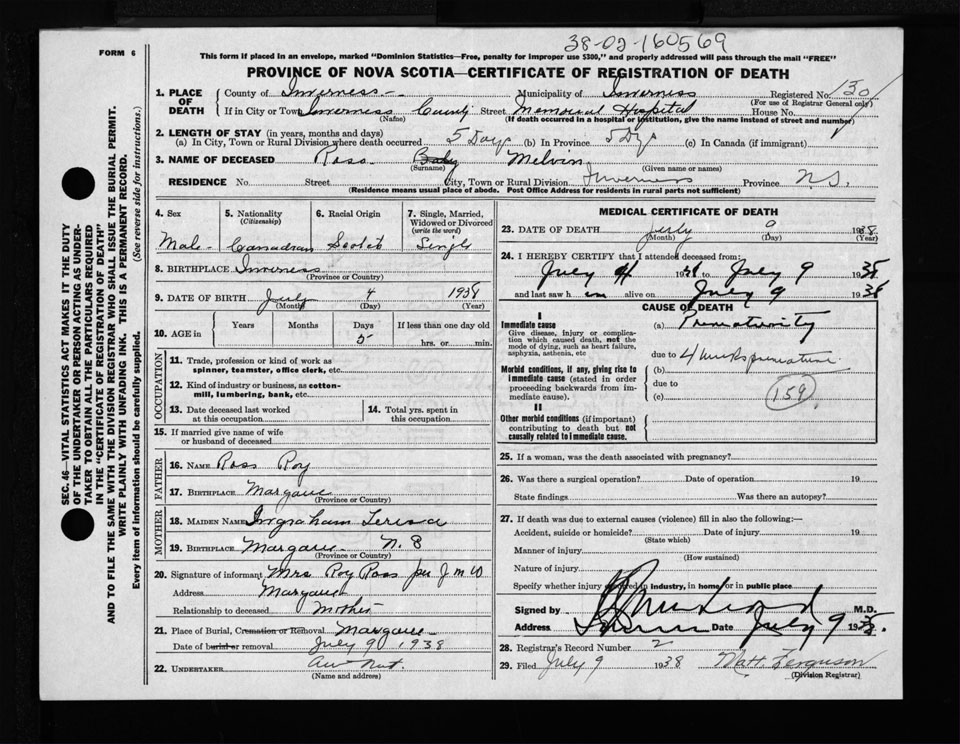 38-02-160569
FORM 6
This form if placed in an envelope, marked "Dominion Statistics—Free, penalty for improper use $300," and properly addressed will pass through the mail "FREE"
PROVINCE OF NOVA SCOTIA—CERTIFICATE OF REGISTRATION OF DEATH
1. PLACE OF DEATH County of Inverness Municipality of Inverness Registered No. 130
(For use of Registrar General only)
If in City or Town Inverness County Street Memorial Hospital House No.
(Name) (If death occurred in a hospital or institution, give the name instead of street and number)
2. LENGTH OF STAY (in years, months and days)
(a) In City, Town or Rural Division where death occurred 5 Days (b) In Province 5 Dys (c) In Canada (if immigrant)
3. NAME OF DECEASED Ross Baby Melvin
(Surname) (Given name or names)
RESIDENCE No. Street City, Town or Rural Division Inverness Province N.S.
(Residence means usual place of abode. Post Office Address for residents in rural parts not sufficient)
4. Sex Male
5. Nationality (Citizenship) Canadian
6. Racial Origin Scotch
7. Single, Married, Widowed or Divorced (write the word) Single
8. BIRTHPLACE Inverness
(Province or Country)
9. DATE OF BIRTH July 4 1938
(Month) (Day) (Year)
10. AGE in Years Months Days 5 If less than one day old hrs. or min.
OCCUPATION
11. Trade, profession or kind of work as spinner, teamster, office clerk, etc.
12. Kind of industry or business, as cotton-mill, lumbering, bank, etc.
13. Date deceased last worked at this occupation
14. Total yrs. spent in this occupation
15. If married give name of wife or husband of deceased
FATHER
16. NAME Ross Roy
17. BIRTHPLACE Margaree
(Province or Country)
MOTHER
18. MAIDEN NAME Ingraham Teresa
19. BIRTHPLACE Margaree N.S
(Province or Country)
20. Signature of informant Mrs Roy Ross per J M W
Address Margaree
Relationship to deceased Mother
21. Place of Burial, Cremation or Removal Margaree
Date of burial or removal July 9 1938
22. UNDERTAKER
(Name and address)
MEDICAL CERTIFICATE OF DEATH
23. DATE OF DEATH July 9 1938
(Month) (Day) (Year)
24. I HEREBY CERTIFY that I attended deceased from:
July 4 1938 to July 9 1938
and last saw h im alive on July 9 1938
CAUSE OF DEATH
I
Immediate cause
Give disease, injury or complication which caused death, not the mode of dying, such as heart failure, asphyxia, asthenia, etc
(a) Prematurity
due to 4 weeks premature
Morbid conditions, if any, giving rise to immediate cause (stated in order proceeding backwards from immediate cause).
(b)
due to
(c) 159
II
Other morbid conditions (if important) contributing to death but not causally related to immediate cause.
25. If a woman, was the death associated with pregnancy?
26. Was there a surgical operation? Date of operation 19
State findings Was there an autopsy?
27. If death was due to external causes (violence) fill in also the following:—
Accident, suicide or homicide? Date of injury 19
(State which)
Manner of injury
(How sustained)
Nature of injury
Specify whether injury occurred in industry, in home or in public place
Signed by M.D.
Address Inverness Date July 9 1938.
28. Registrar's Record Number 2
29. Filed July 9 1938 Matt. Ferguson
(Division Registrar)
SEC. 46—VITAL STATISTICS ACT MAKES IT THE DUTY
OF THE UNDERTAKER OR PERSON ACTING AS UNDER-
TAKER TO OBTAIN ALL THE PARTICULARS REQUIRED
IN THE "CERTIFICATE OF REGISTRATION OF DEATH"
AND TO FILE THE SAME WITH THE DIVISION REGISTRAR WHO SHALL ISSUE THE BURIAL PERMIT.
WRITE PLAINLY WITH UNFADING INK. THIS IS A PERMANENT RECORD.
Every item of information should be carefully supplied. (See reverse side for instructions.)